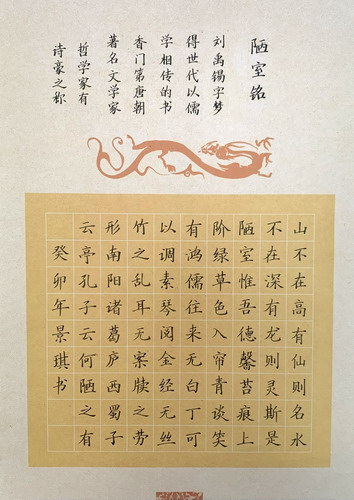 陋室铭
刘禹锡字梦
得世代以儒
学相传的书
香门第唐朝
著名文学家
哲学家有
诗豪之称
山不在高有仙则名水
不在深有龙则灵斯是
陋室惟吾德馨苔痕上
阶绿草色入帘青谈笑
有鸿儒往来无白丁可
以调素琴阅金经无丝
竹之乱耳无案牍之劳
形南阳诸葛庐西蜀子
云亭孔子云何陋之有
癸卯年景琪书